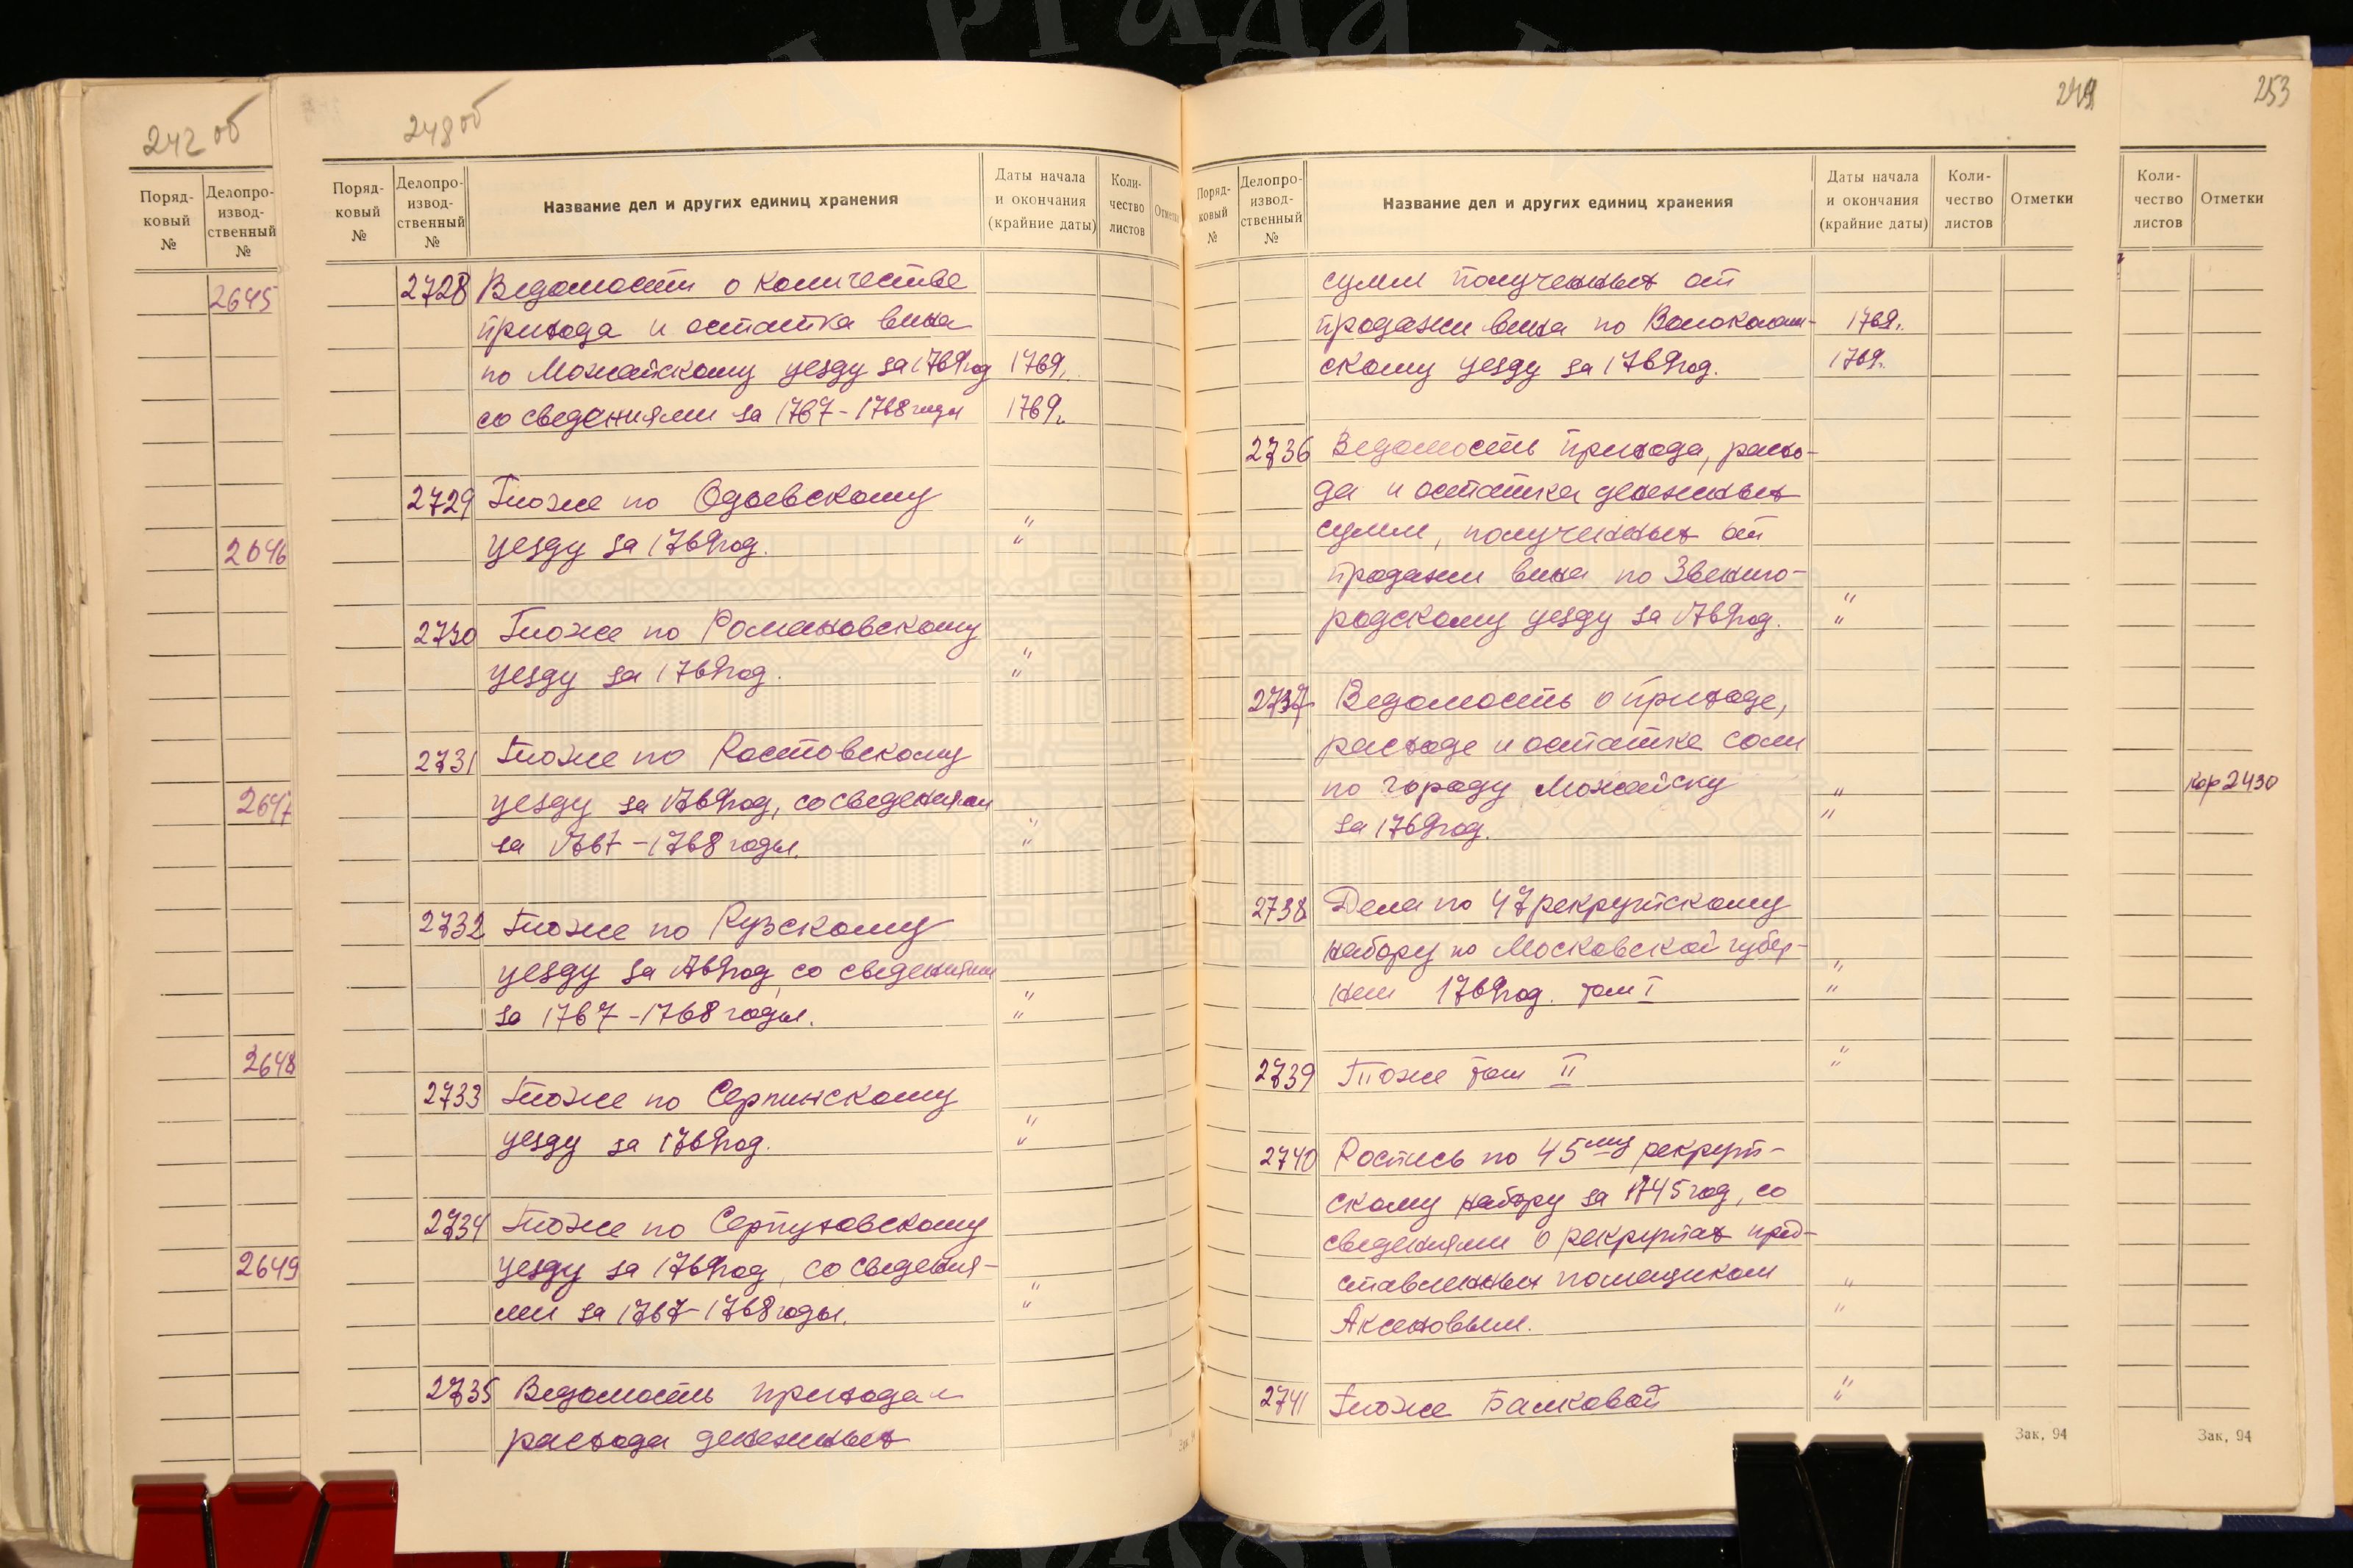 242 об
Поряд-
ковый
№
Делопро-
извод-
ственный
№
2645
2646
2647
2648
2649
248 об
Поряд-
ковый
№
Делопро-
извод-
ственный
№
Название дел и других единиц хранения
Даты начала
и окончания
(крайние даты)
Коли-
чество
листов
2728 Ведомости о количестве
прихода и остатка вина
по Можайскому уезду за 1769 год 1769 г.
со сведениями за 1767-1768 годы 1769 г.
2729 Тоже по Одоевскому "
уезду за 1769 год. "
2730 Тоже по Романовскому "
уезду за 1769 год. "
2731 Тоже по Ростовскому
уезду за 1769 год, со сведениями "
за 1767-1768 годы. "
2732 Тоже по Рузскому
уезду за 1769 год, со сведениями "
за 1767-1768 годы. "
2733 Тоже по Серпинскому "
уезду за 1769 год. "
2734 Тоже по Серпуховскому
уезду за 1769 год, со сведения- "
ми за 1767-1768 годы. "
2735 Ведомость прихода и
расхода денежных
249
Поряд-
ковый
№
Делопро-
извод-
ственный
№
Название дел и других единиц хранения
Даты начала
и окончания
(крайние даты)
Коли-
чество
листов
Отметки
сумм полученных от
продажи вина по Волоколам- 1769 г.
скому уезду за 1769 год. 1769 г.
2736 Ведомость прихода, расхо-
да и остатка денежных
сумм, полученных от
продажи вина по Звениго- "
родскому уезду за 1769 год. "
2737 Ведомость о приходе,
расходе и остатке соли
по городу Можайску "
за 1769 год. "
2738 Дела по 47 рекрутскому
набору по Московской губер- "
нии 1769 год. том I "
2739 Тоже том II "
"
2740 Роспись по 45му рекрут-
скому набору за 1745 год, со
сведениями о рекрутах пред-
ставленных помещиком "
Аксеновым. "
2741 Тоже "
"
Зак. 94
253
Коли-
чество
листов
Отметки
кор 2430
Зак. 94